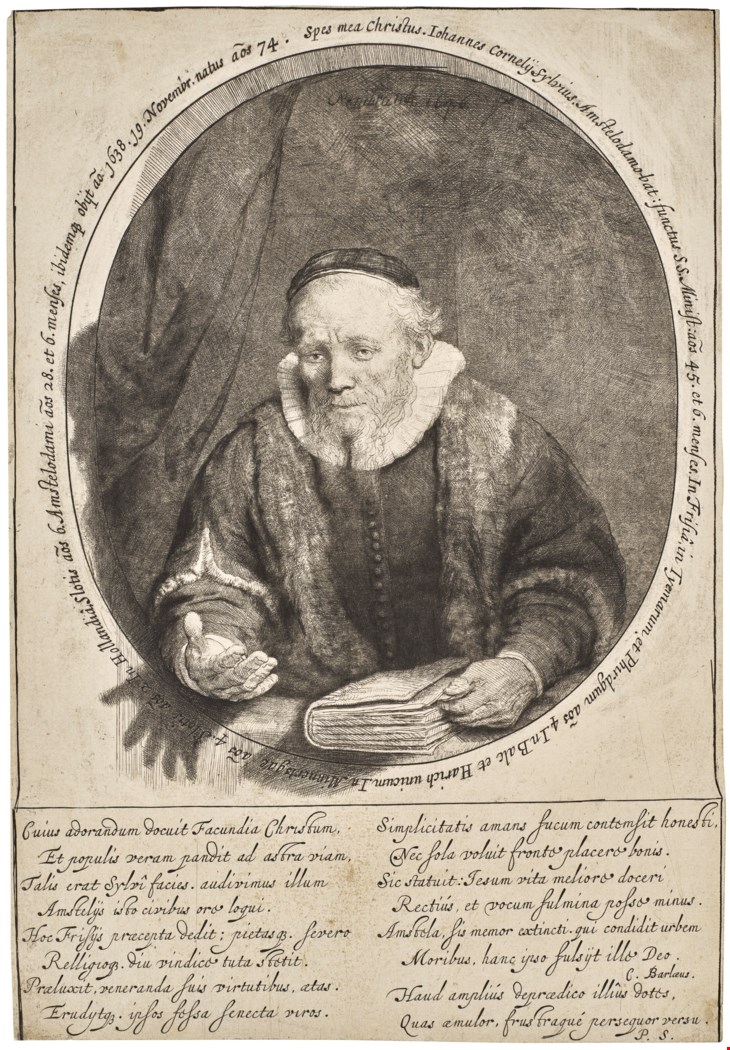 Spes mea Christus. Iohannes Cornelij Sylvius, Amstelodamo-bat: functus S.S. Minist: aõs 45. et 6. menses. In Frisiâ, in Tyemarum, et Phirdgum aõs 4. In Balc et Harich unicum. In Minnertsgae aõs 4. Slotis aõs 2. In Hollandiâ, Slotis aõs 6. Amstelodami aõs 28. et 6. menses, ibidemqȝ obijt aõ. 1638. 19. Novembr. natus aõs 74.
Rembrandt 1646
Cuius adorandum docuit Facundia Christum,
Et populis veram pandit ad astra viam,
Talis erat Sylvî facies. audivimus illum
Amstelijs isto civibus ore loqui.
Hoc Frisijs præcepta dedit; pietasqȝ. severo
Relligioqȝ. diu vindice tuta stetit.
Præluxit, veneranda suis virtutibus, ætas.
Erudijtqȝ. ipsos fessa senecta viros.
Simplicitatis amans fucum contemsit honesti,
Nec sola voluit fronte placere bonis.
Sic statuit: Iesum vita meliore doceri
Rectiùs, et vocum fulmina posse minus.
Amstela, sis memor extincti. qui condidit urbem
Moribus, hanc ipso fulsijt ille Deo.
C. Barlæus.
Haud ampliùs deprædico illius dotes,
Quas æmulor, frustraque persequor versu.
P. S.